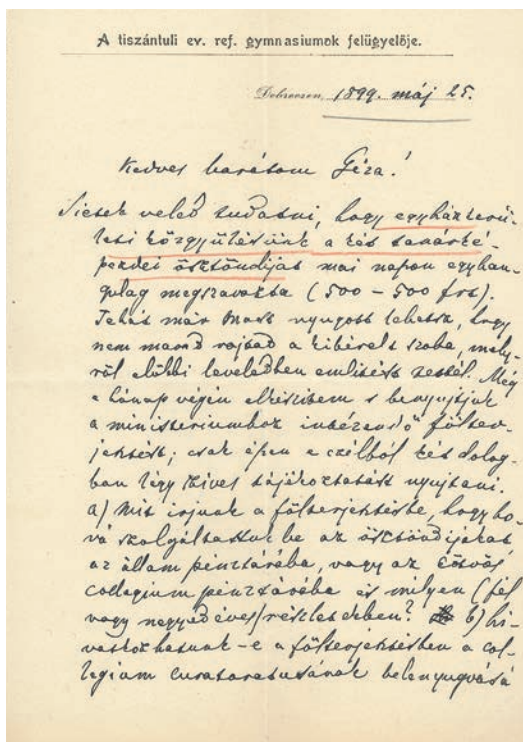 A tiszántuli ev. ref. gymnasiumok felügyelője.
Debreczen, 1899. máj 25.
Kedves barátom Géza!
Sietek veled tudatni, hogy egyházkerü-
leti közgyűlésünk a két tanárké-
pezdei ösztöndíjat mai napon egyhan-
gulag megszavazta (500 – 500 frt).
Tehát már most nyugodt lehetsz, hogy
nem marad rajtad a kibérelt szoba, mely-
ről előbbi leveledben emlitést tettél. Még
e hónap végén elkészitem s benyujtjuk
a ministeriumhoz intézendő fölter-
jesztést; csak épen e czélból két dolog-
ban légy szives tájékoztatást nyujtani.
a) Mit irjunk a fölterjesztésbe, hogy ho-
vá szolgáltassuk be az ösztöndijakat
az állam pénztárába, vagy az Eötvös
collegium pénztárába és milyen (fél
vagy negyedéves) részletekben? b) hi-
vatkozhatunk-e a fölterjesztésben a col-
legium curatoratusának belenyugvásá